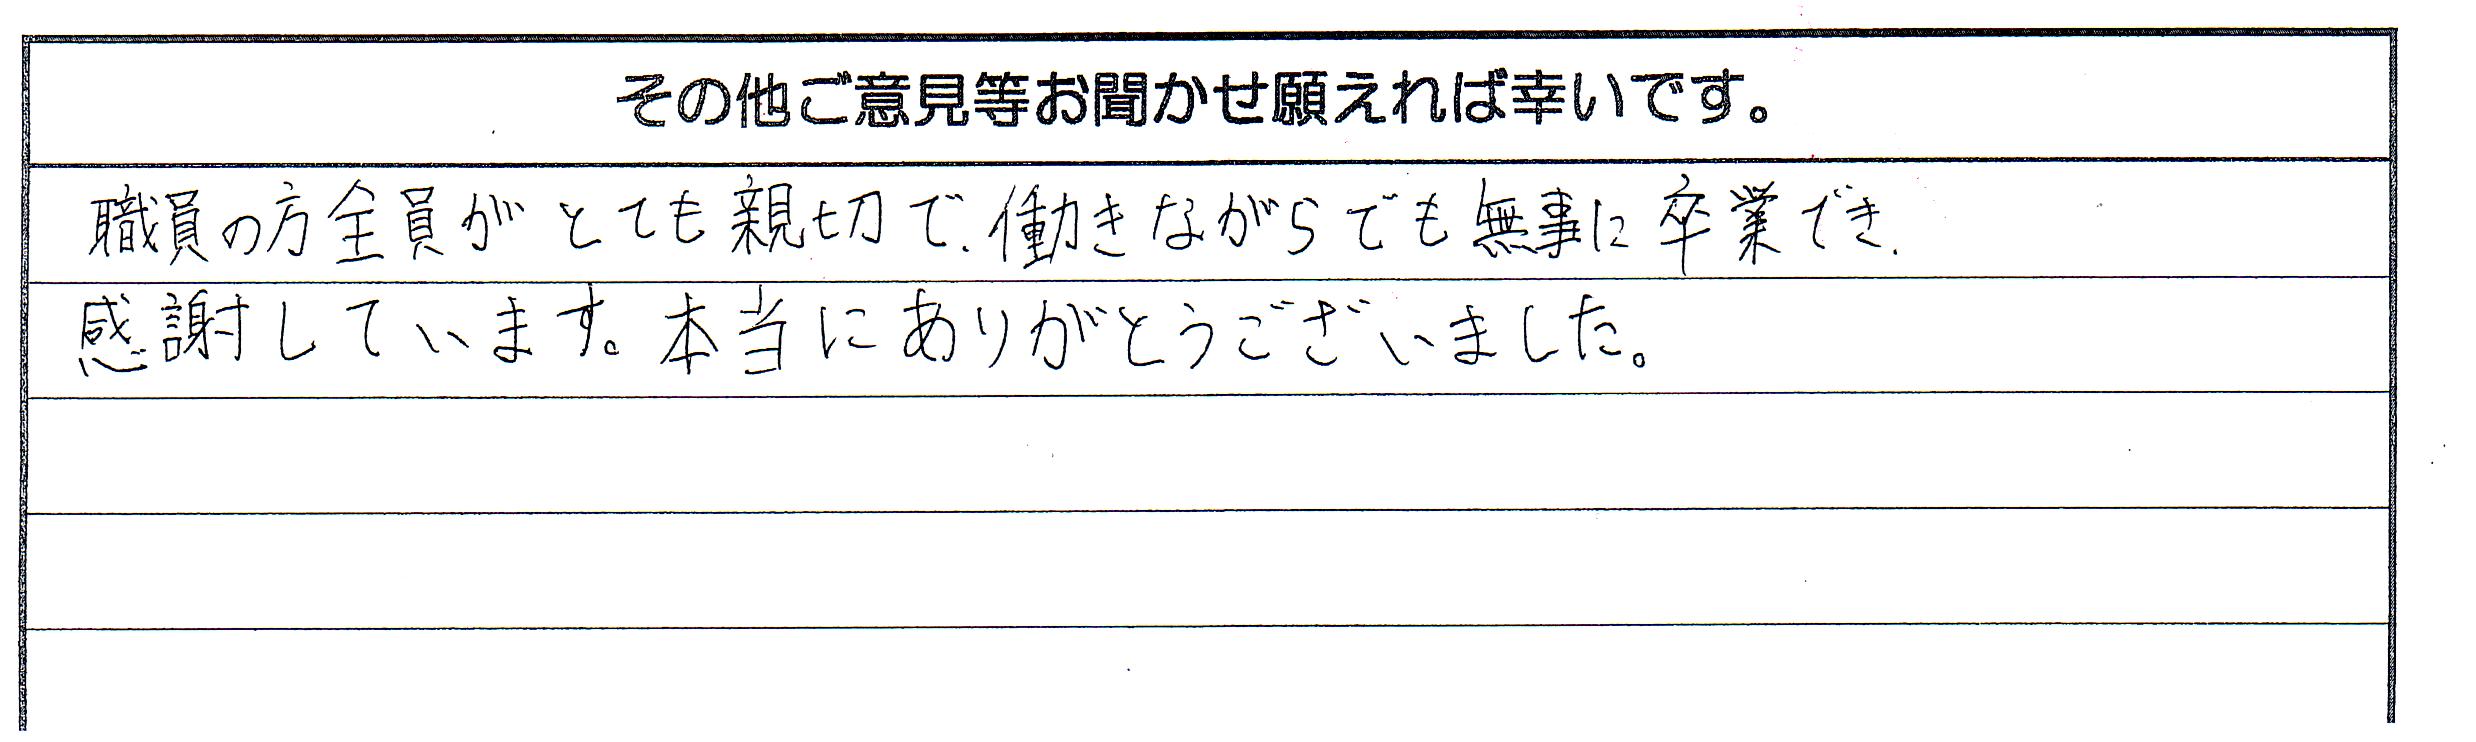 その他ご意見等お聞かせ願えれば幸いです。
職員の方全員がとても親切で、働きながらでも無事に卒業でき、
感謝しています。本当にありがとうございました。